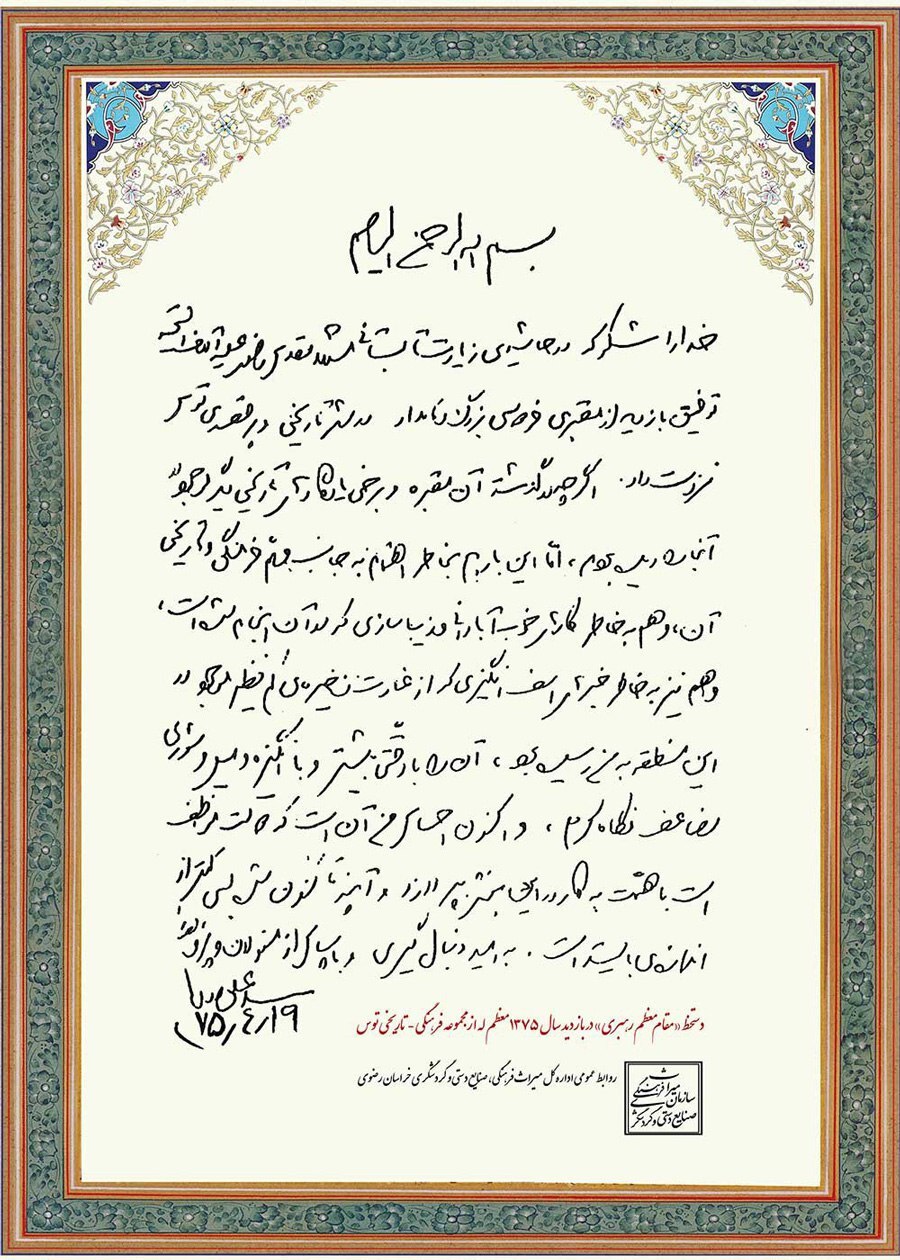 بسم الله الرحمن الرحیم
خدا را شکر که در حاشیه‌ی زیارت تابستانی مشهد مقدس
توفیق بازدید از مقبره‌ی فردوسی بزرگ و نامدار در شهر تاریخی توس
دست داد. اگرچه در گذشته آن مقبره و برخی یادگارهای تاریخی دیگر موجود
آنجا را دیده بودم، اما این بار هم بخاطر اهتمام به جانب مهم فرهنگی و تاریخی
آن، و هم به خاطر کارهای خوب آبادانی و زیباسازی که در آن انجام شده است،
و هم نیز به خاطر خبرهای اسف‌انگیزی که از غارت ذخیره‌های کم‌نظیر موجود در
این منطقه به من رسیده بود، آن را با دقتی بیشتر و با انگیزه و میل و شوری
مضاعف نگاه کردم، و اکنون احساس من آن است که دولت موظف
است با همت به کار در این بخش بپردازد و آنچه تاکنون شده بسی کمتر از
اندازه‌ی بایسته است. به امید دنبال‌گیری و با سپاس از مسئولان
سید علی
۷۵/۴/۱۹
دستخط «مقام معظم رهبری» در بازدید سال ۱۳۷۵ معظم له از مجموعه فرهنگی - تاریخی توس
روابط عمومی اداره کل میراث فرهنگی، صنایع دستی و گردشگری خراسان رضوی
سازمان میراث فرهنگی
صنایع دستی و گردشگری